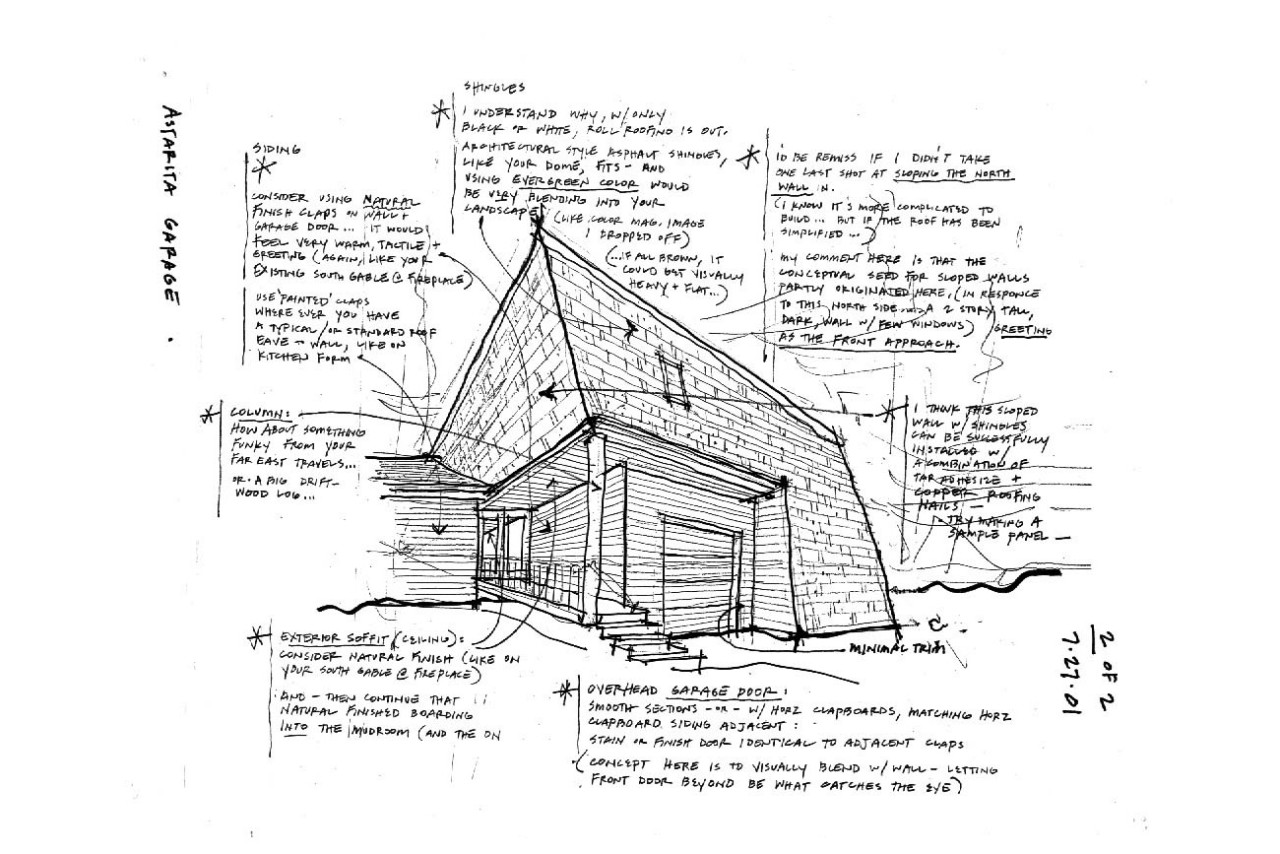 ASTARITA GARAGE.
SHINGLES
I UNDERSTAND WHY, W/ ONLY
BLACK OR WHITE, ROLL ROOFING IS OUT.
ARCHITECTURAL STYLE ASPHALT SHINGLES,
LIKE YOUR DOME, FITS - AND
USING EVERGREEN COLOR WOULD
BE VERY BLENDING INTO YOUR
LANDSCAPE
(LIKE COLOR MAG. IMAGE
I DROPPED OFF)
(...IF ALL BROWN, IT
COULD GET VISUALLY
HEAVY + FLAT...)
SIDING
CONSIDER USING NATURAL
FINISH CLAPS ON WALL +
GARAGE DOOR... IT WOULD
FEEL VERY WARM, TACTILE +
GREETING (AGAIN, LIKE YOUR
EXISTING SOUTH GABLE @ FIREPLACE)
USE 'PAINTED' CLAPS
WHERE EVER YOU HAVE
A TYPICAL/OR STANDARD ROOF
EAVE - WALL, LIKE ON
KITCHEN FORM
I'D BE REMISS IF I DIDN'T TAKE
ONE LAST SHOT AT SLOPING THE NORTH
WALL IN.
(I KNOW IT'S MORE COMPLICATED TO
BUILD... BUT IF THE ROOF HAS BEEN
SIMPLIFIED...)
MY COMMENT HERE IS THAT THE
CONCEPTUAL SEED FOR SLOPED WALLS
PARTLY ORIGINATED HERE, (IN RESPONCE
TO THIS NORTH SIDE... A 2 STORY TALL,
DARK, WALL W/ FEW WINDOWS) GREETING
AS THE FRONT APPROACH.
COLUMN:
HOW ABOUT SOMETHING
FUNKY FROM YOUR
FAR EAST TRAVELS...
OR A BIG DRIFT-
WOOD LOG...
I THINK THIS SLOPED
WALL W/ SHINGLES
CAN BE SUCESSFULLY
INSTALLED W/
A COMBINATION OF
TAR ADHESIZE +
COPPER ROOFING
NAILS -
TRY MAKING A
SAMPLE PANEL -
EXTERIOR SOFFIT (CEILING):
CONSIDER NATURAL FINISH (LIKE ON
YOUR SOUTH GABLE @ FIREPLACE)
AND - THEN CONTINUE THAT
NATURAL FINISHED BOARDING
INTO THE MUDROOM (AND THE ON
MINIMAL TRIM
OVERHEAD GARAGE DOOR:
SMOOTH SECTIONS - OR - W/ HORZ CLAPBOARDS, MATCHING HORZ
CLAPBOARD SIDING ADJACENT:
STAIN OR FINISH DOOR IDENTICAL TO ADJACENT CLAPS
(CONCEPT HERE IS TO VISUALLY BLEND W/ WALL - LETTING
FRONT DOOR BEYOND BE WHAT CATCHES THE EYE)
2 OF 2
7.27.01